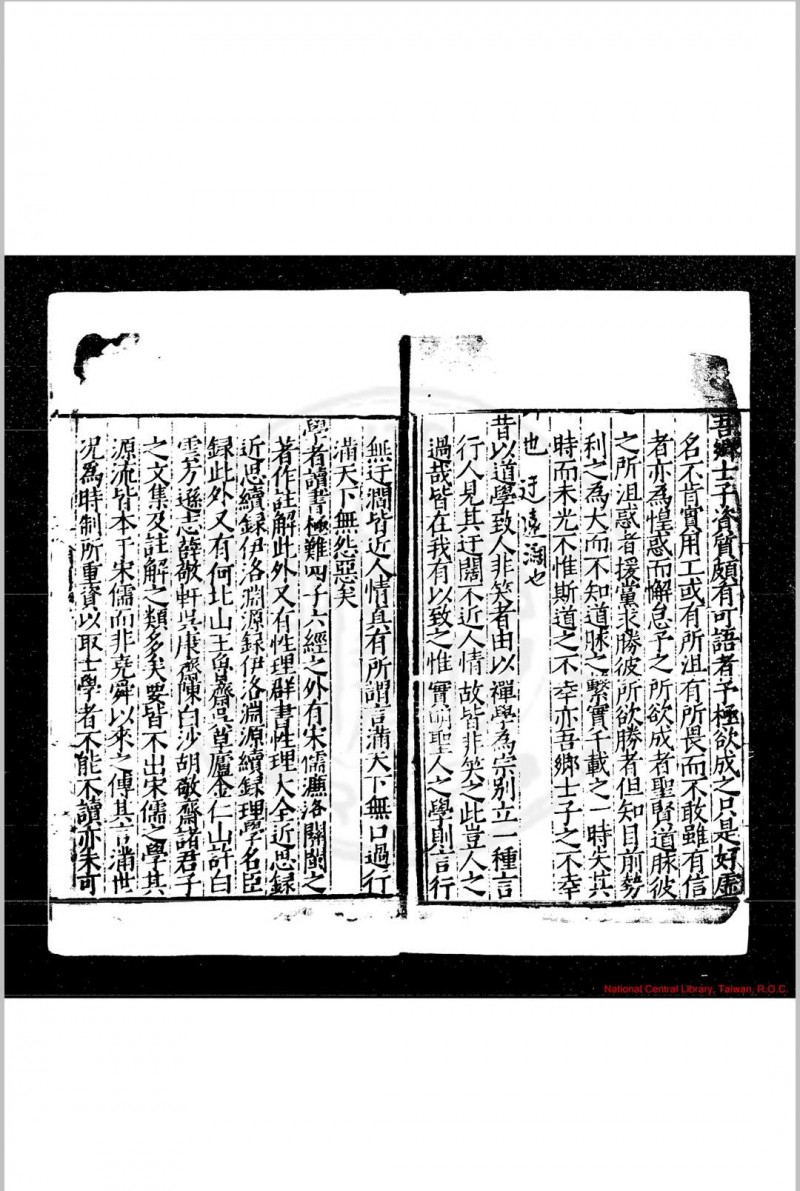 吾鄉士子資質頗有可語者予極欲成之只是好虛
名不肯實用工或有所沮有所畏而不敢雖有信
者亦為惶惑而懈怠予之所欲成者聖賢道脉彼
之所沮惑者援黨求勝彼所欲勝者但知目前勢
利之為大而不知道脉之繫實千載之一時失其
時而未光不惟斯道之不幸亦吾鄉士子之不幸
也 迂遠濶也
昔以道學致人非笑者由以禪學為宗別立一種言
行人見其迂闊不近人情故皆非笑之此豈人之
過哉皆在我有以致之惟實萌聖人之學則言行
無迂濶皆近人情真有所謂言滿天下無口過行
滿天下無怨惡矣
學者讀書極難四子六經之外有宋儒濂洛關閩之
著作註解此外又有性理群書性理大全近思録
近思續録伊洛淵源録伊洛淵源續録理學名臣
録此外又有何北山王魯齋吳草廬金仁山許白
雲方遜志薛敬軒吳康齋陳白沙胡敬齋諸君子
之文集及註解之類多矣要皆不出宋儒之學其
源流皆本于宋儒而非堯舜以來之傳其言滿世
况為時制所重資以取士學者不能不讀亦未可
National Central Library, Taiwan, R.O.C.